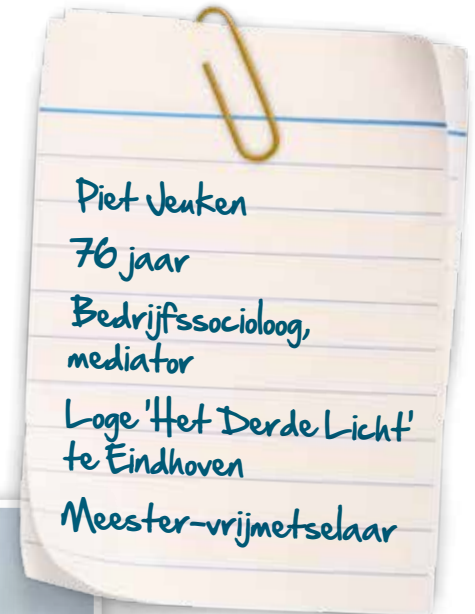 Piet Jeuken
76 jaar
Bedrijfssocioloog,
mediator
Loge 'Het Derde Licht'
te Eindhoven
Meester-vrijmetselaar